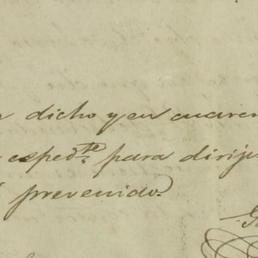 dicho y en cuaren
espedte. para dirij
prevenido.